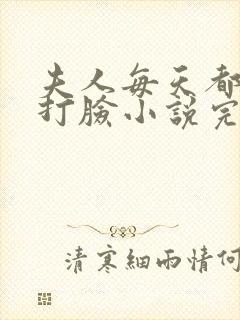 夫人每天都
打臉小説完
清寒細雨情何